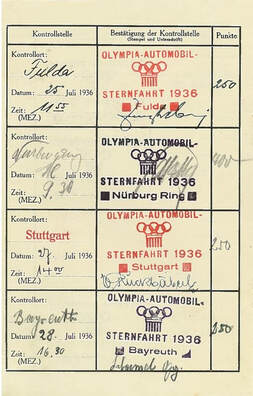 Kontrollstelle
Bestätigung der Kontrollstelle
(Stempel und Unterschrift)
Punkte
Kontrollort:
Fulda
Datum: 25 Juli 1936
Zeit: 11 55
(MEZ.)
OLYMPIA-AUTOMOBIL-
STERNFAHRT 1936
Fulda
250
Kontrollort:
Nürburgring
Datum: Juli 1936
Zeit: 9.30
(MEZ.)
OLYMPIA-AUTOMOBIL-
STERNFAHRT 1936
Nürburg Ring
400
Kontrollort:
Stuttgart
Datum: 27. Juli 1936
Zeit: 14 00
(MEZ.)
OLYMPIA-AUTOMOBIL-
STERNFAHRT 1936
Stuttgart
250
Kontrollort:
Bayreuth
Datum: 28. Juli 1936
Zeit: 16.30
(MEZ.)
OLYMPIA-AUTOMOBIL-
STERNFAHRT 1936
Bayreuth